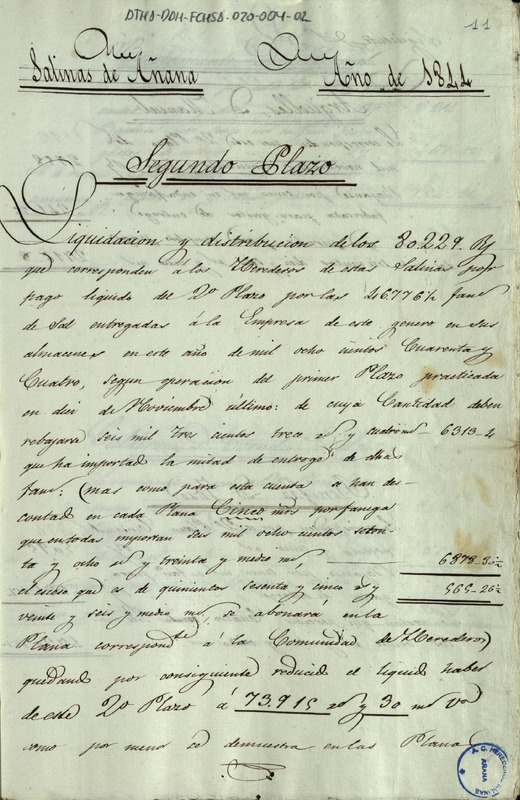 DTHA-DAH-FCHSA-020-004-02
11
Salinas de Añana Año de 1844
Segundo Plazo
Liquidacion y distribucion de los 80.229. Rs
que corresponden á los Herederos de estas Salinas por
pago liquido del 2º Plazo por las 46.776½ fans
de Sal entregadas á la Empresa de este genero en sus
almacenes en este año de mil ocho cientos Cuarenta y
Cuatro, segun operacion del primer Plazo practicada
en dia de Noviembre ultimo: de cuya Cantidad deben
rebajarse seis mil tres cientos trece rs y cuatro ms 6313-4
que ha importado la mitad de entroge de dhas
fans: (mas como para esta cuenta se han des-
contado en cada Plana Cinco mrs por faniga
que en todas importan seis mil ocho cientos seten-
ta y ocho rs y treinta y medio ms, 6878-30½
el exceso que es de quinientos sesenta y cinco rs y 565-26½
veinte y seis y medio ms, se abonará en la
Plana correspondte á la Comunidad de Herederos)
quedando por consiguiente reducido el liquido haber
de este 2º Plazo á 73.915 rs y 30 ms Von
como por menor se demuestra en las Planas
A. G. HEREDEROS SALINAS
AÑANA